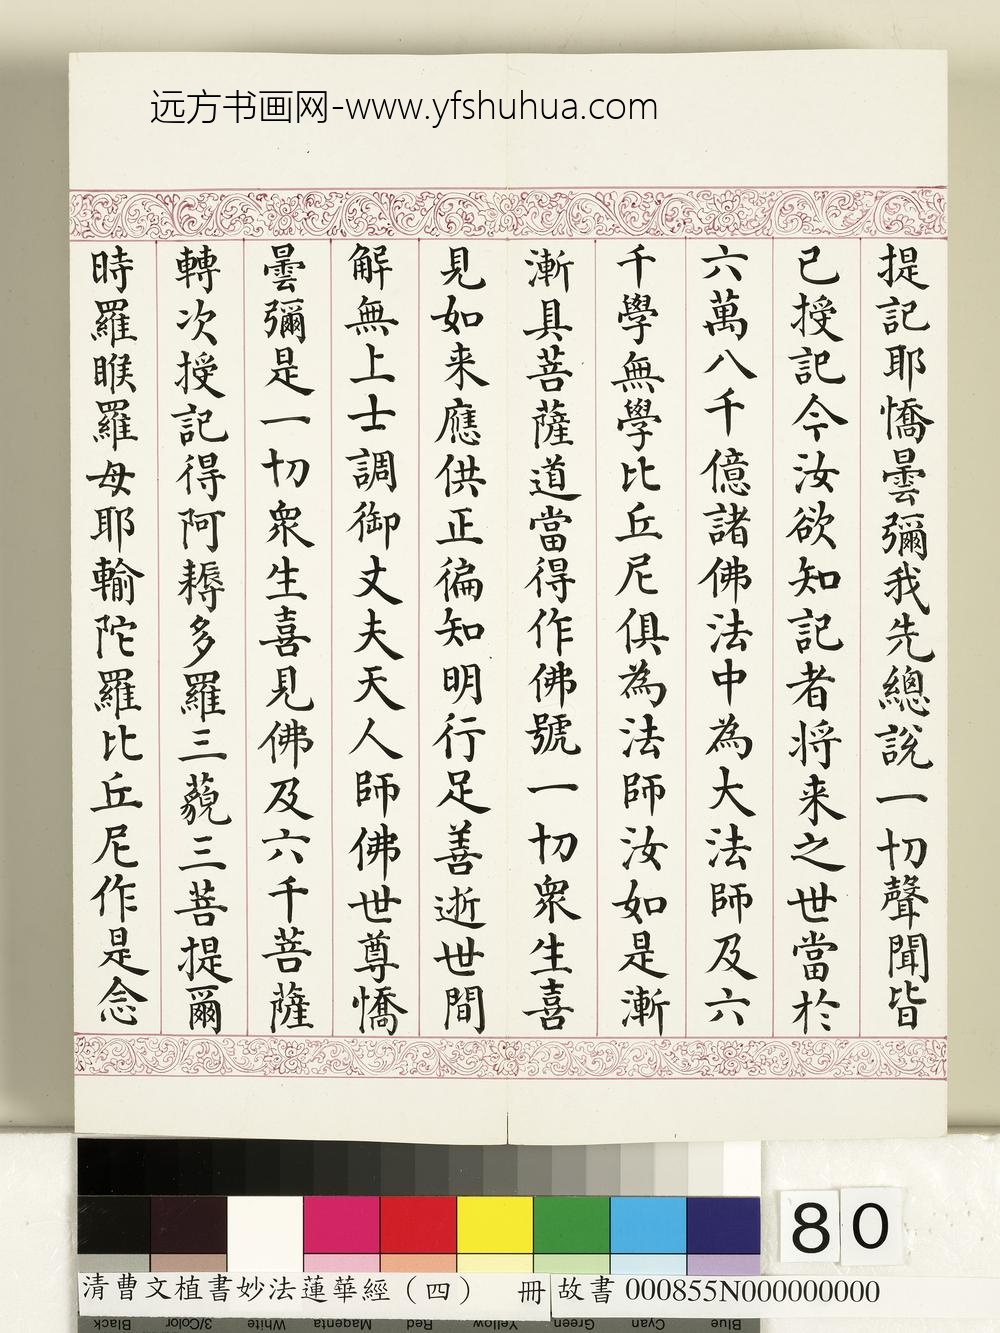 远方书画网-www.yfshuhua.com
提記耶憍曇彌我先總說一切聲聞皆
已授記今汝欲知記者将来之世當於
六萬八千億諸佛法中為大法師及六
千學無學比丘尼俱為法師汝如是漸
漸具菩薩道當得作佛號一切衆生喜
見如来應供正徧知明行足善逝世間
解無上士調御丈夫天人師佛世尊憍
曇彌是一切衆生喜見佛及六千菩薩
轉次授記得阿耨多羅三藐三菩提爾
時羅睺羅母耶輸陀羅比丘尼作是念
80
清曹文植書妙法蓮華經（四） 冊
故書 000855N000000000
Black
3/Color
White
Magenta
Red
Yellow
Green
Cyan
Blue